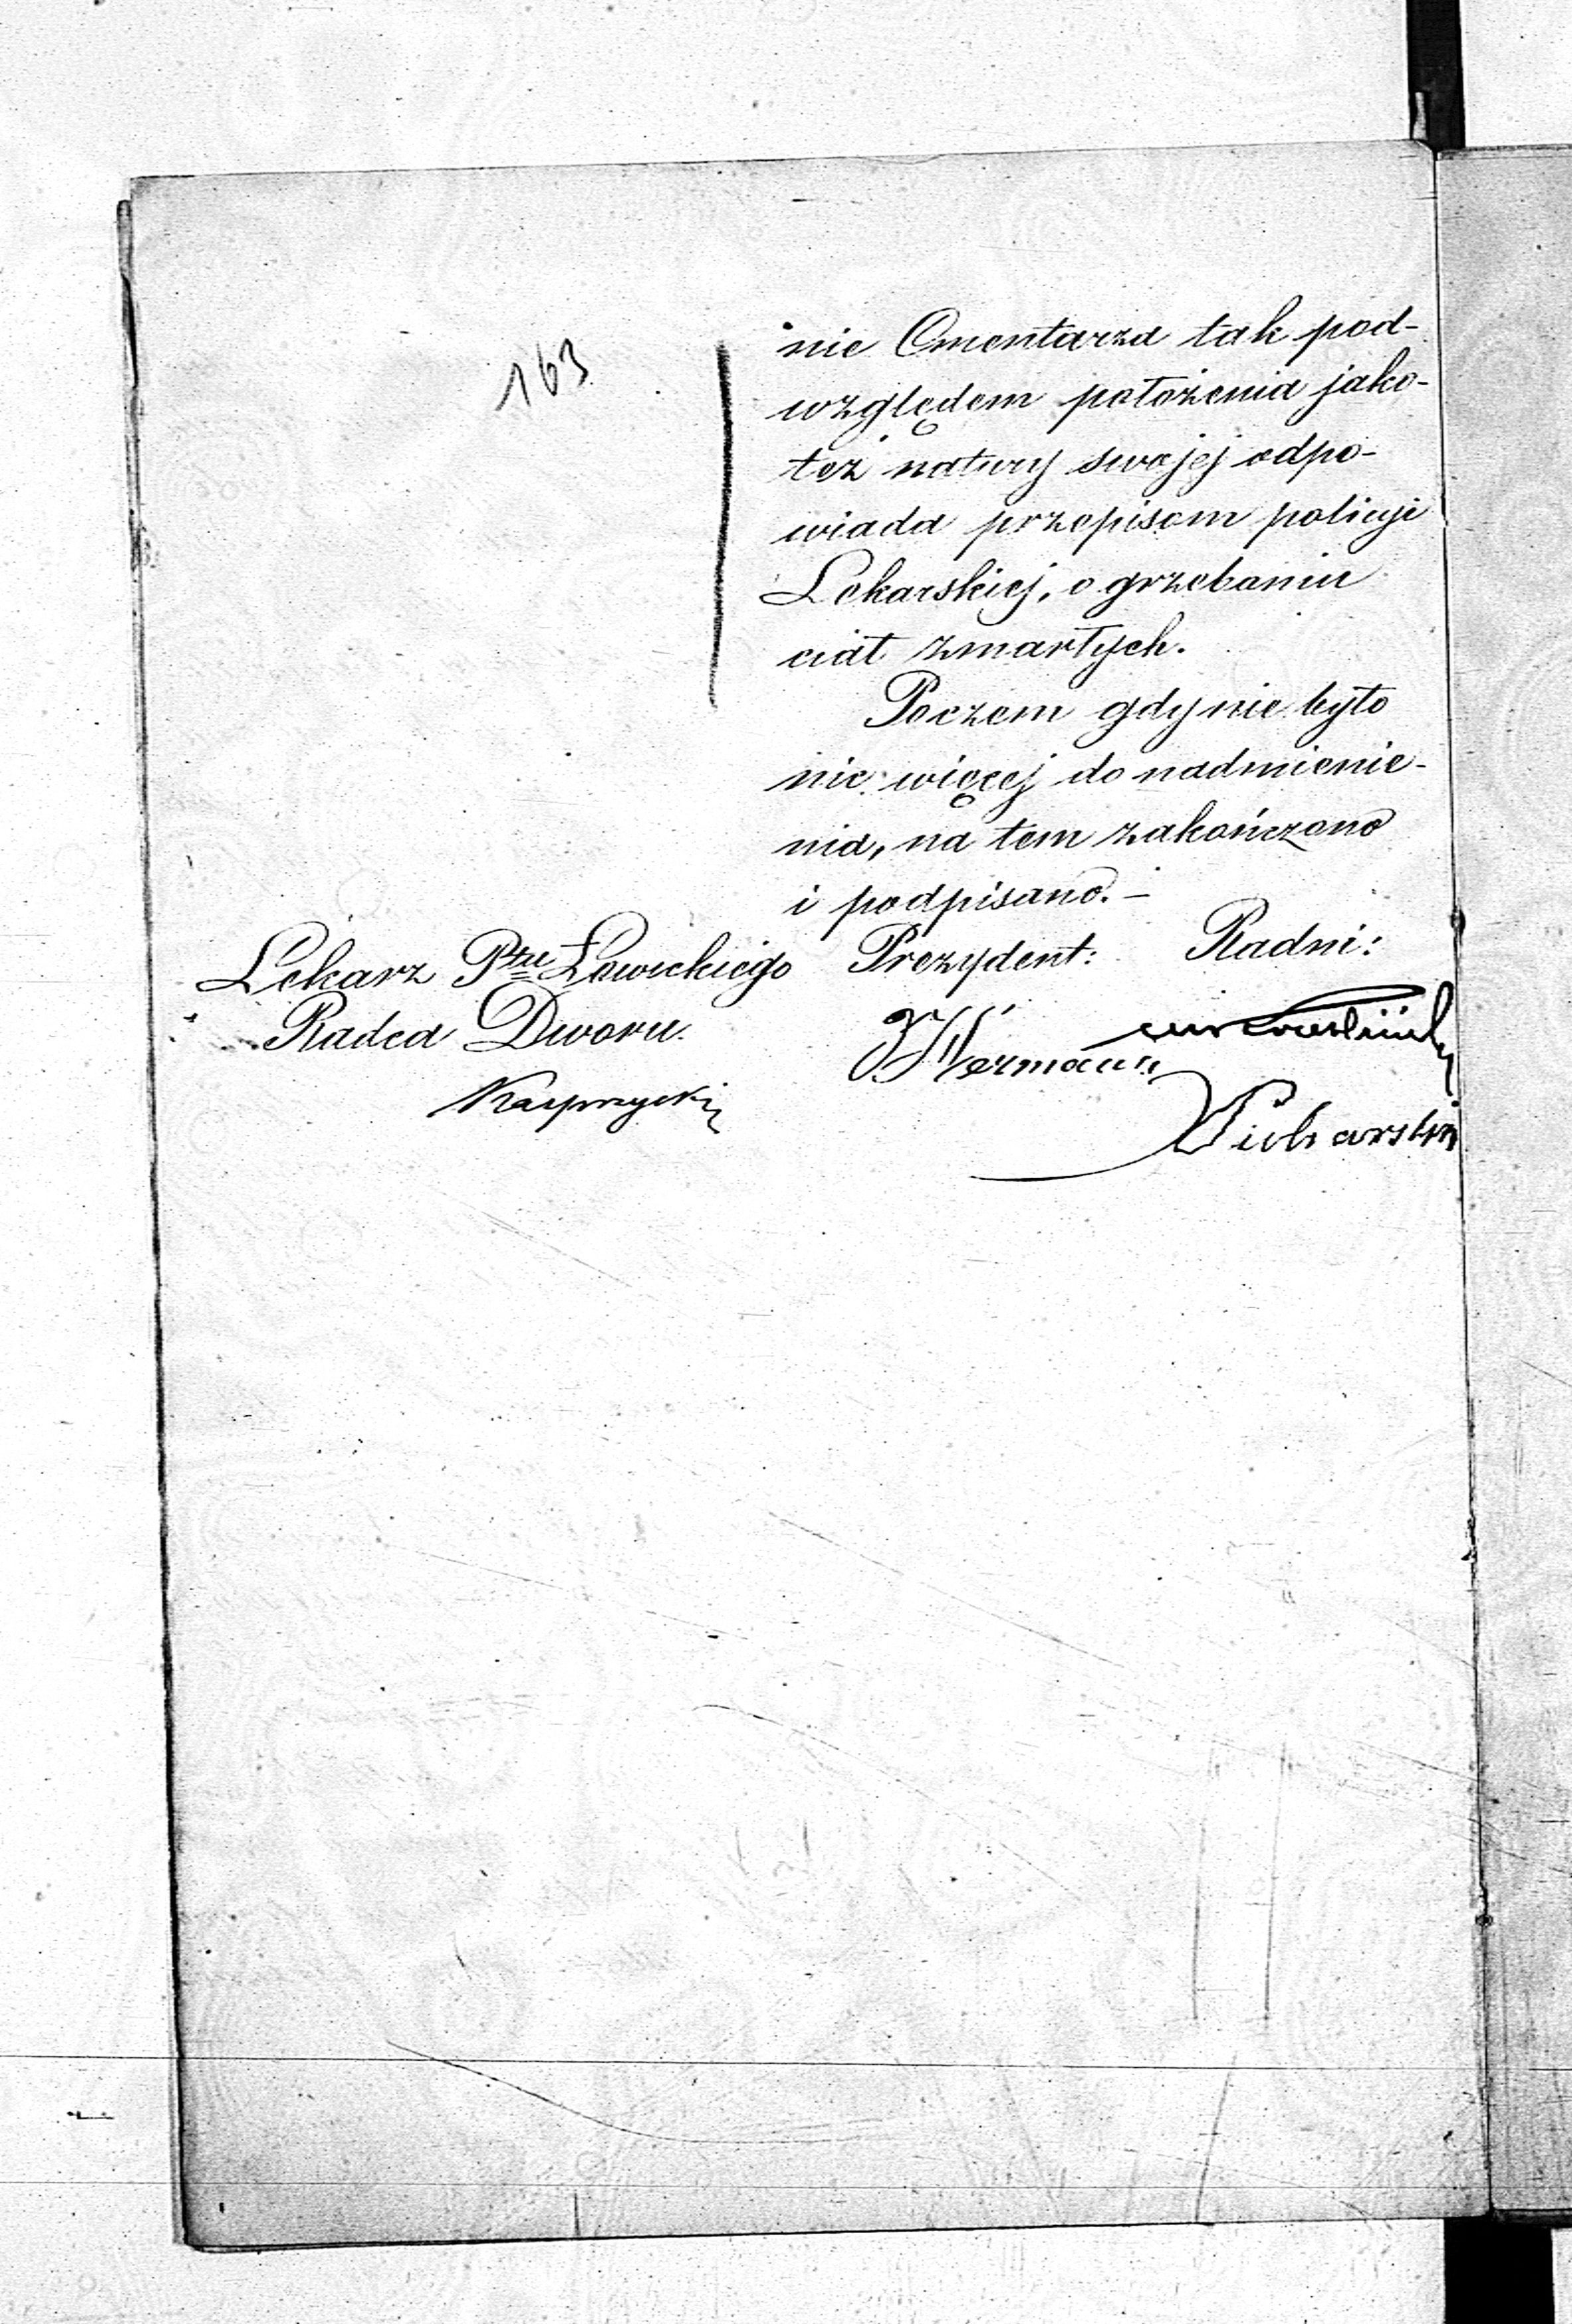 163
nie Cmentarza tak pod-
względem położenia jako-
też natury swojej odpo-
wiada przepisom policyi
Lekarskiej, o grzebaniu
ciał zmarłych.
Poczem gdy nie było
nic więcej do nadmienie-
nia, na tem zakończono
i podpisano. -
Lekarz Ptu Łowickiego Prezydent: Radni:
Radca Dworu.
Hermann
Kasprzycki